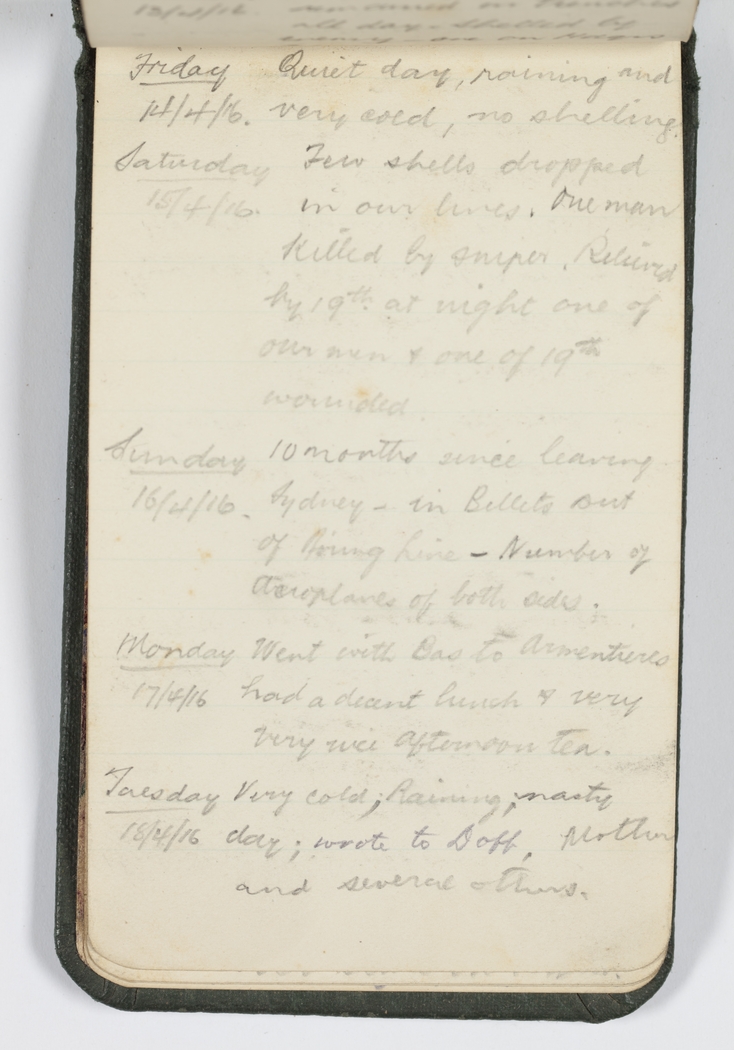 13/4/16. remained in trenches
all day - shelled by
enemy - one on
Friday Quiet day, raining and
14/4/16. very cold, no shelling.
Saturday Few shells dropped
15/4/16. in our lines. One man
killed by sniper. Relieved
by 19th at night one of
our men & one of 19th
wounded
Sunday 10 months since leaving
16/4/16. Sydney - in Billets out
of Firing Line - Number of
Aeroplanes of both sides.
Monday Went with Bas to Armentieres
17/4/16 had a decent lunch & very
very nice afternoon tea.
Tuesday Very cold; Raining; nasty
18/4/16 day; wrote to Doff, Mother
and several others.